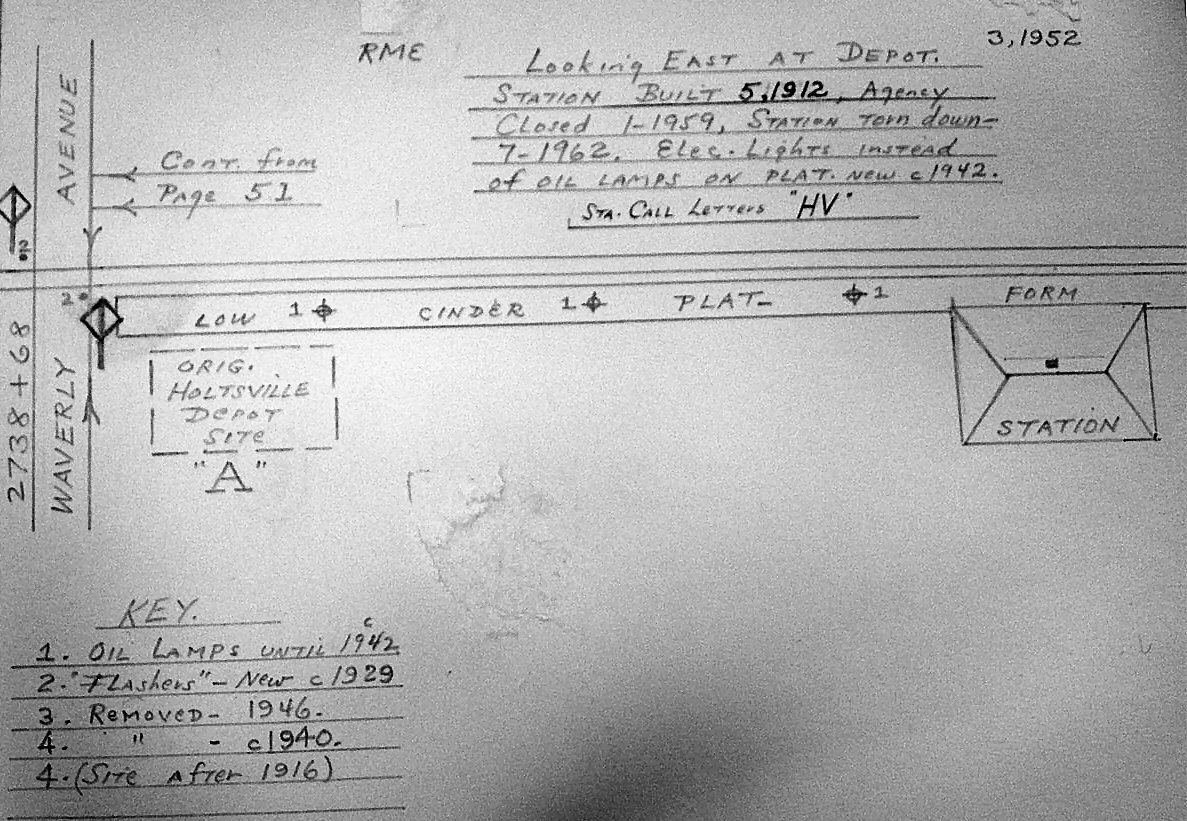 RME
3,1952
Looking EAST AT DEPOT.
STATION BUILT 5,1912, Agency
Closed 1-1959, STATION TORN down-
7-1962. Elec. Lights INSTEAD
of OIL LAMPS ON PLAT. NEW c1942.
STA. CALL Letters "HV"
AVENUE
Cont. from
Page 51
2
2738+68
WAVERLY
2
LOW 1 CINDER 1 PLAT- 1 FORM
ORIG.
HOLTSVILLE
DEPOT
SITE
"A"
STATION
KEY.
1. OIL LAMPS UNTIL c1942
2. "Flashers" - New c1929
3. Removed - 1946.
4. " - c1940.
4. (Site After 1916)